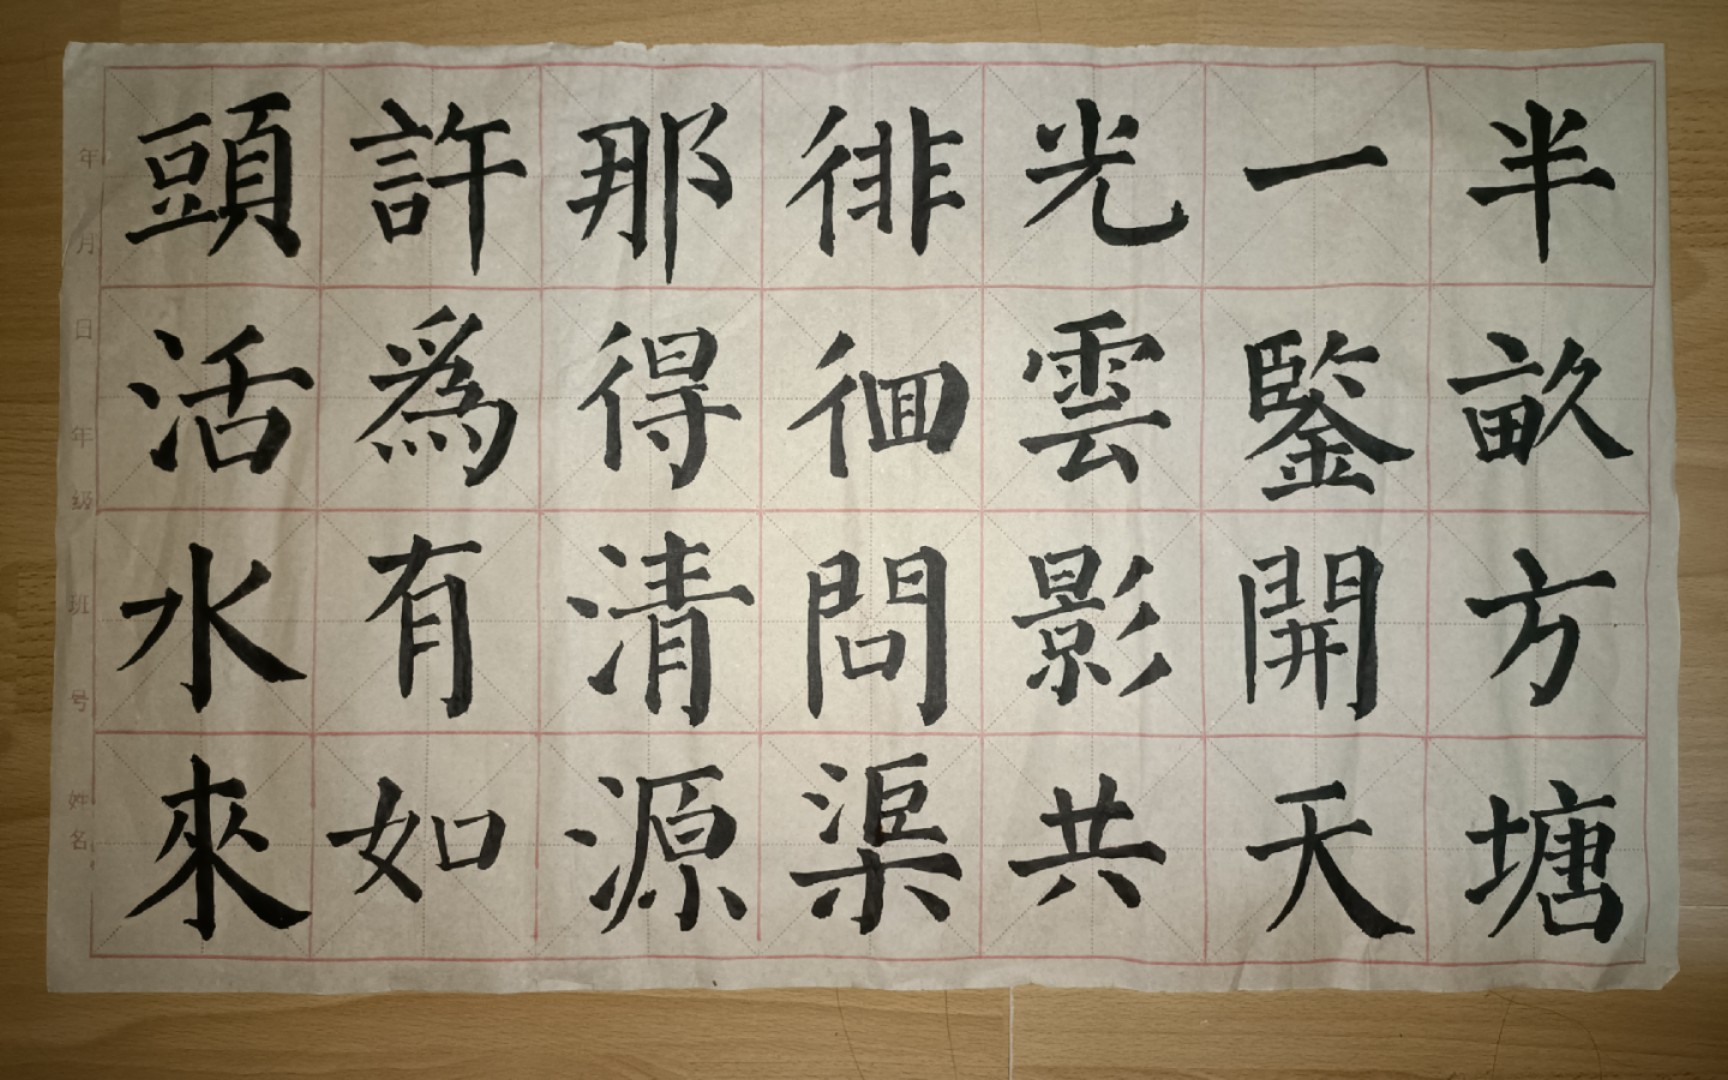 半畝方塘
一鑒開天
光雲影共
徘徊問渠
那得清源
許爲有如
頭活水來
年 月 日 年 级 班 号 姓名